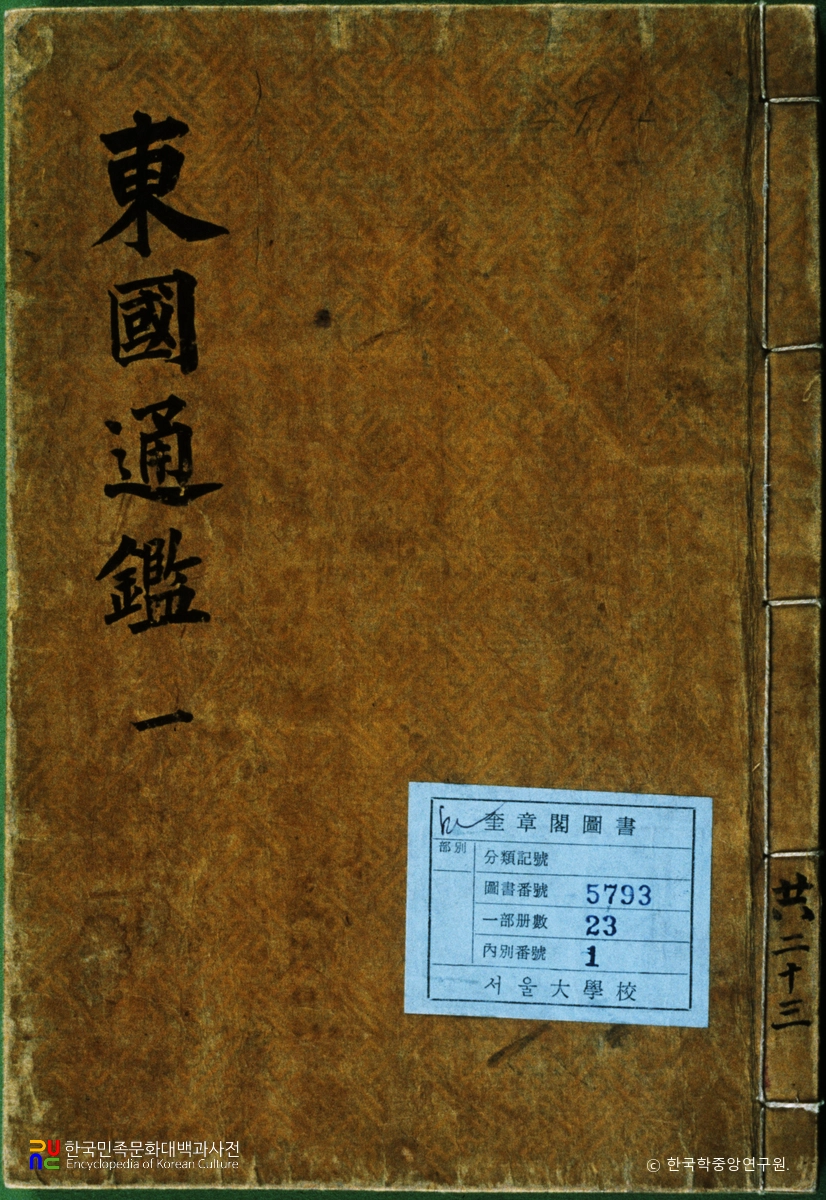 東國通鑑 一
奎章閣圖書
部別
分類記號
圖書番號 5793
一部册數 23
內別番號 1
서울大學校
共二十三
한국민족문화대백과사전
Encyclopedia of Korean Culture
© 한국학중앙연구원.